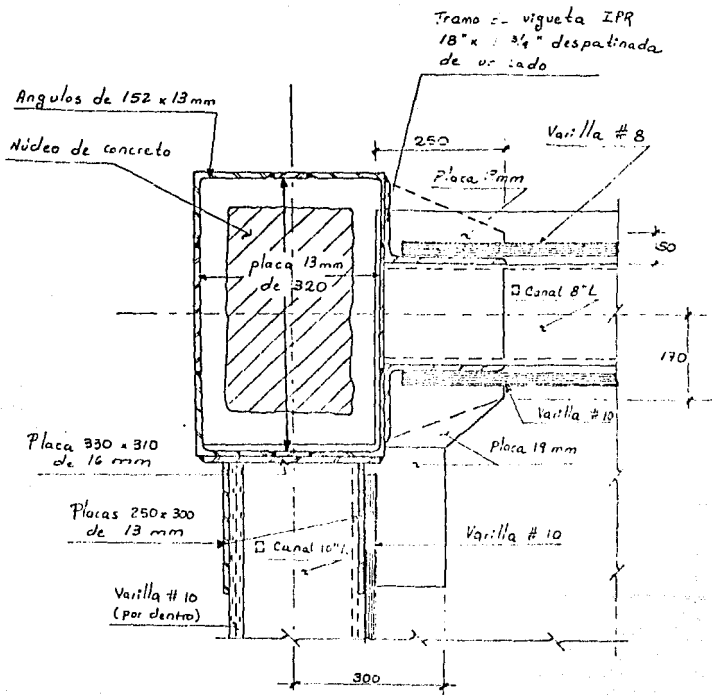 Tramo vigueta IPR
18" x 3/4" despatinada
de un lado
Angulos de 152 x 13 mm
Núcleo de concreto
250
Varilla # 8
Placa mm
50
placa 13 mm
de 320
Canal 8" L
170
Varilla # 10
Placa 19 mm
Placa 330 x 310
de 16 mm
Placas 250 x 300
de 13 mm
Canal 10" L
Varilla # 10
Varilla # 10
(por dentro)
300